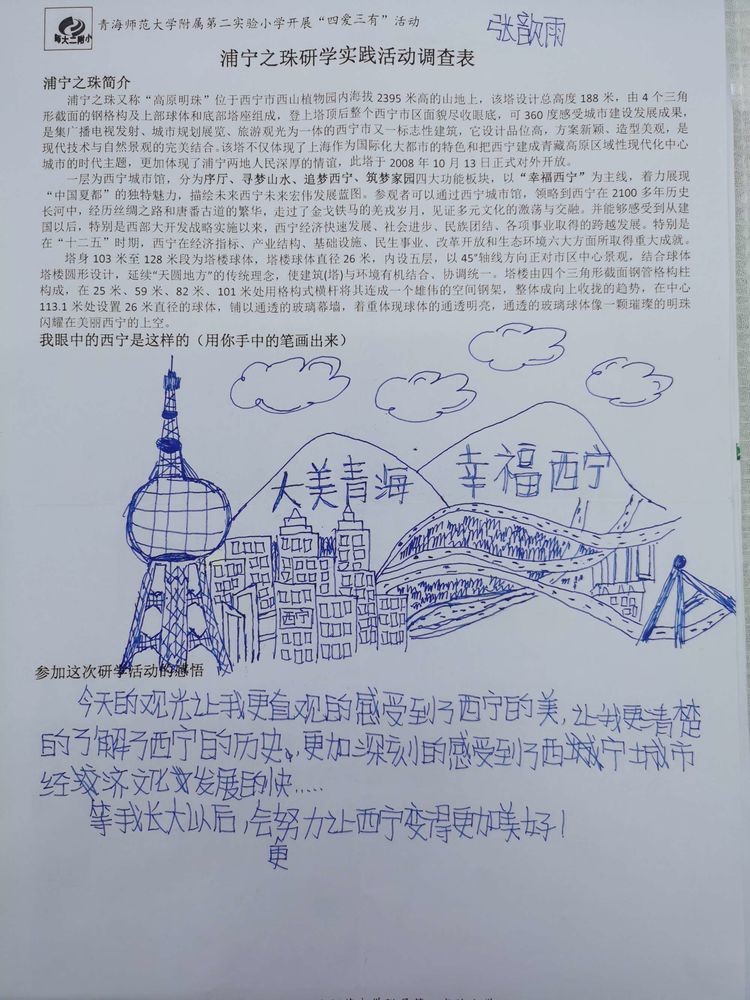 青海师范大学附属第二实验小学开展“四爱三有”活动
张歆雨
浦宁之珠研学实践活动调查表
浦宁之珠简介
浦宁之珠又称“高原明珠”位于西宁市西山植物园内海拔 2395 米高的山地上，该塔设计总高度 188 米，由 4 个三角
形截面的钢格构及上部球体和底部塔座组成，登上塔顶后整个西宁市区面貌尽收眼底，可 360 度感受城市建设发展成果，
是集广播电视发射、城市规划展览、旅游观光为一体的西宁市又一标志性建筑，它设计品位高，方案新颖、造型美观，是
现代技术与自然景观的完美结合。该塔不仅体现了上海作为国际化大都市的特色和把西宁建成青藏高原区域性现代化中心
城市的时代主题，更加体现了浦宁两地人民深厚的情谊，此塔于 2008 年 10 月 13 日正式对外开放。
一层为西宁城市馆，分为序厅、寻梦山水、追梦西宁、筑梦家园四大功能板块，以“幸福西宁”为主线，着力展现
“中国夏都”的独特魅力，描绘未来西宁未来宏伟发展蓝图。参观者可以通过西宁城市馆，领略到西宁在 2100 多年历史
长河中，经历丝绸之路和唐番古道的繁华，走过了金戈铁马的羌戎岁月，见证多元文化的激荡与交融。并能够感受到从建
国以后，特别是西部大开发战略实施以来，西宁经济快速发展、社会进步、民族团结、各项事业取得的跨越发展。特别是
在“十二五”时期，西宁在经济指标、产业结构、基础设施、民生事业、改革开放和生态环境六大方面所取得重大成就。
塔身 103 米至 128 米段为塔楼球体，塔楼球体直径 26 米，内设五层，以 45°轴线方向正对市区中心景观，结合球体
塔楼圆形设计，延续“天圆地方”的传统理念，使建筑(塔)与环境有机结合、协调统一。塔楼由四个三角形截面钢管格构柱
构成，在 25 米、59 米、82 米、101 米处用格构式横杆将其连成一个雄伟的空间钢架，整体成向上收拢的趋势，在中心
113.1 米处设置 26 米直径的球体，铺以通透的玻璃幕墙，着重体现球体的通透明亮，通透的玻璃球体像一颗璀璨的明珠
闪耀在美丽西宁的上空。
我眼中的西宁是这样的（用你手中的笔画出来）
大美青海
幸福西宁
西宁
参加这次研学活动的感悟
今天的观光让我更直观的感受到了西宁的美，让我更清楚
的了解了西宁的历史，更加深刻的感受到了西宁城市
经济文化发展的快……
等我长大以后，会更努力让西宁变得更加美好！